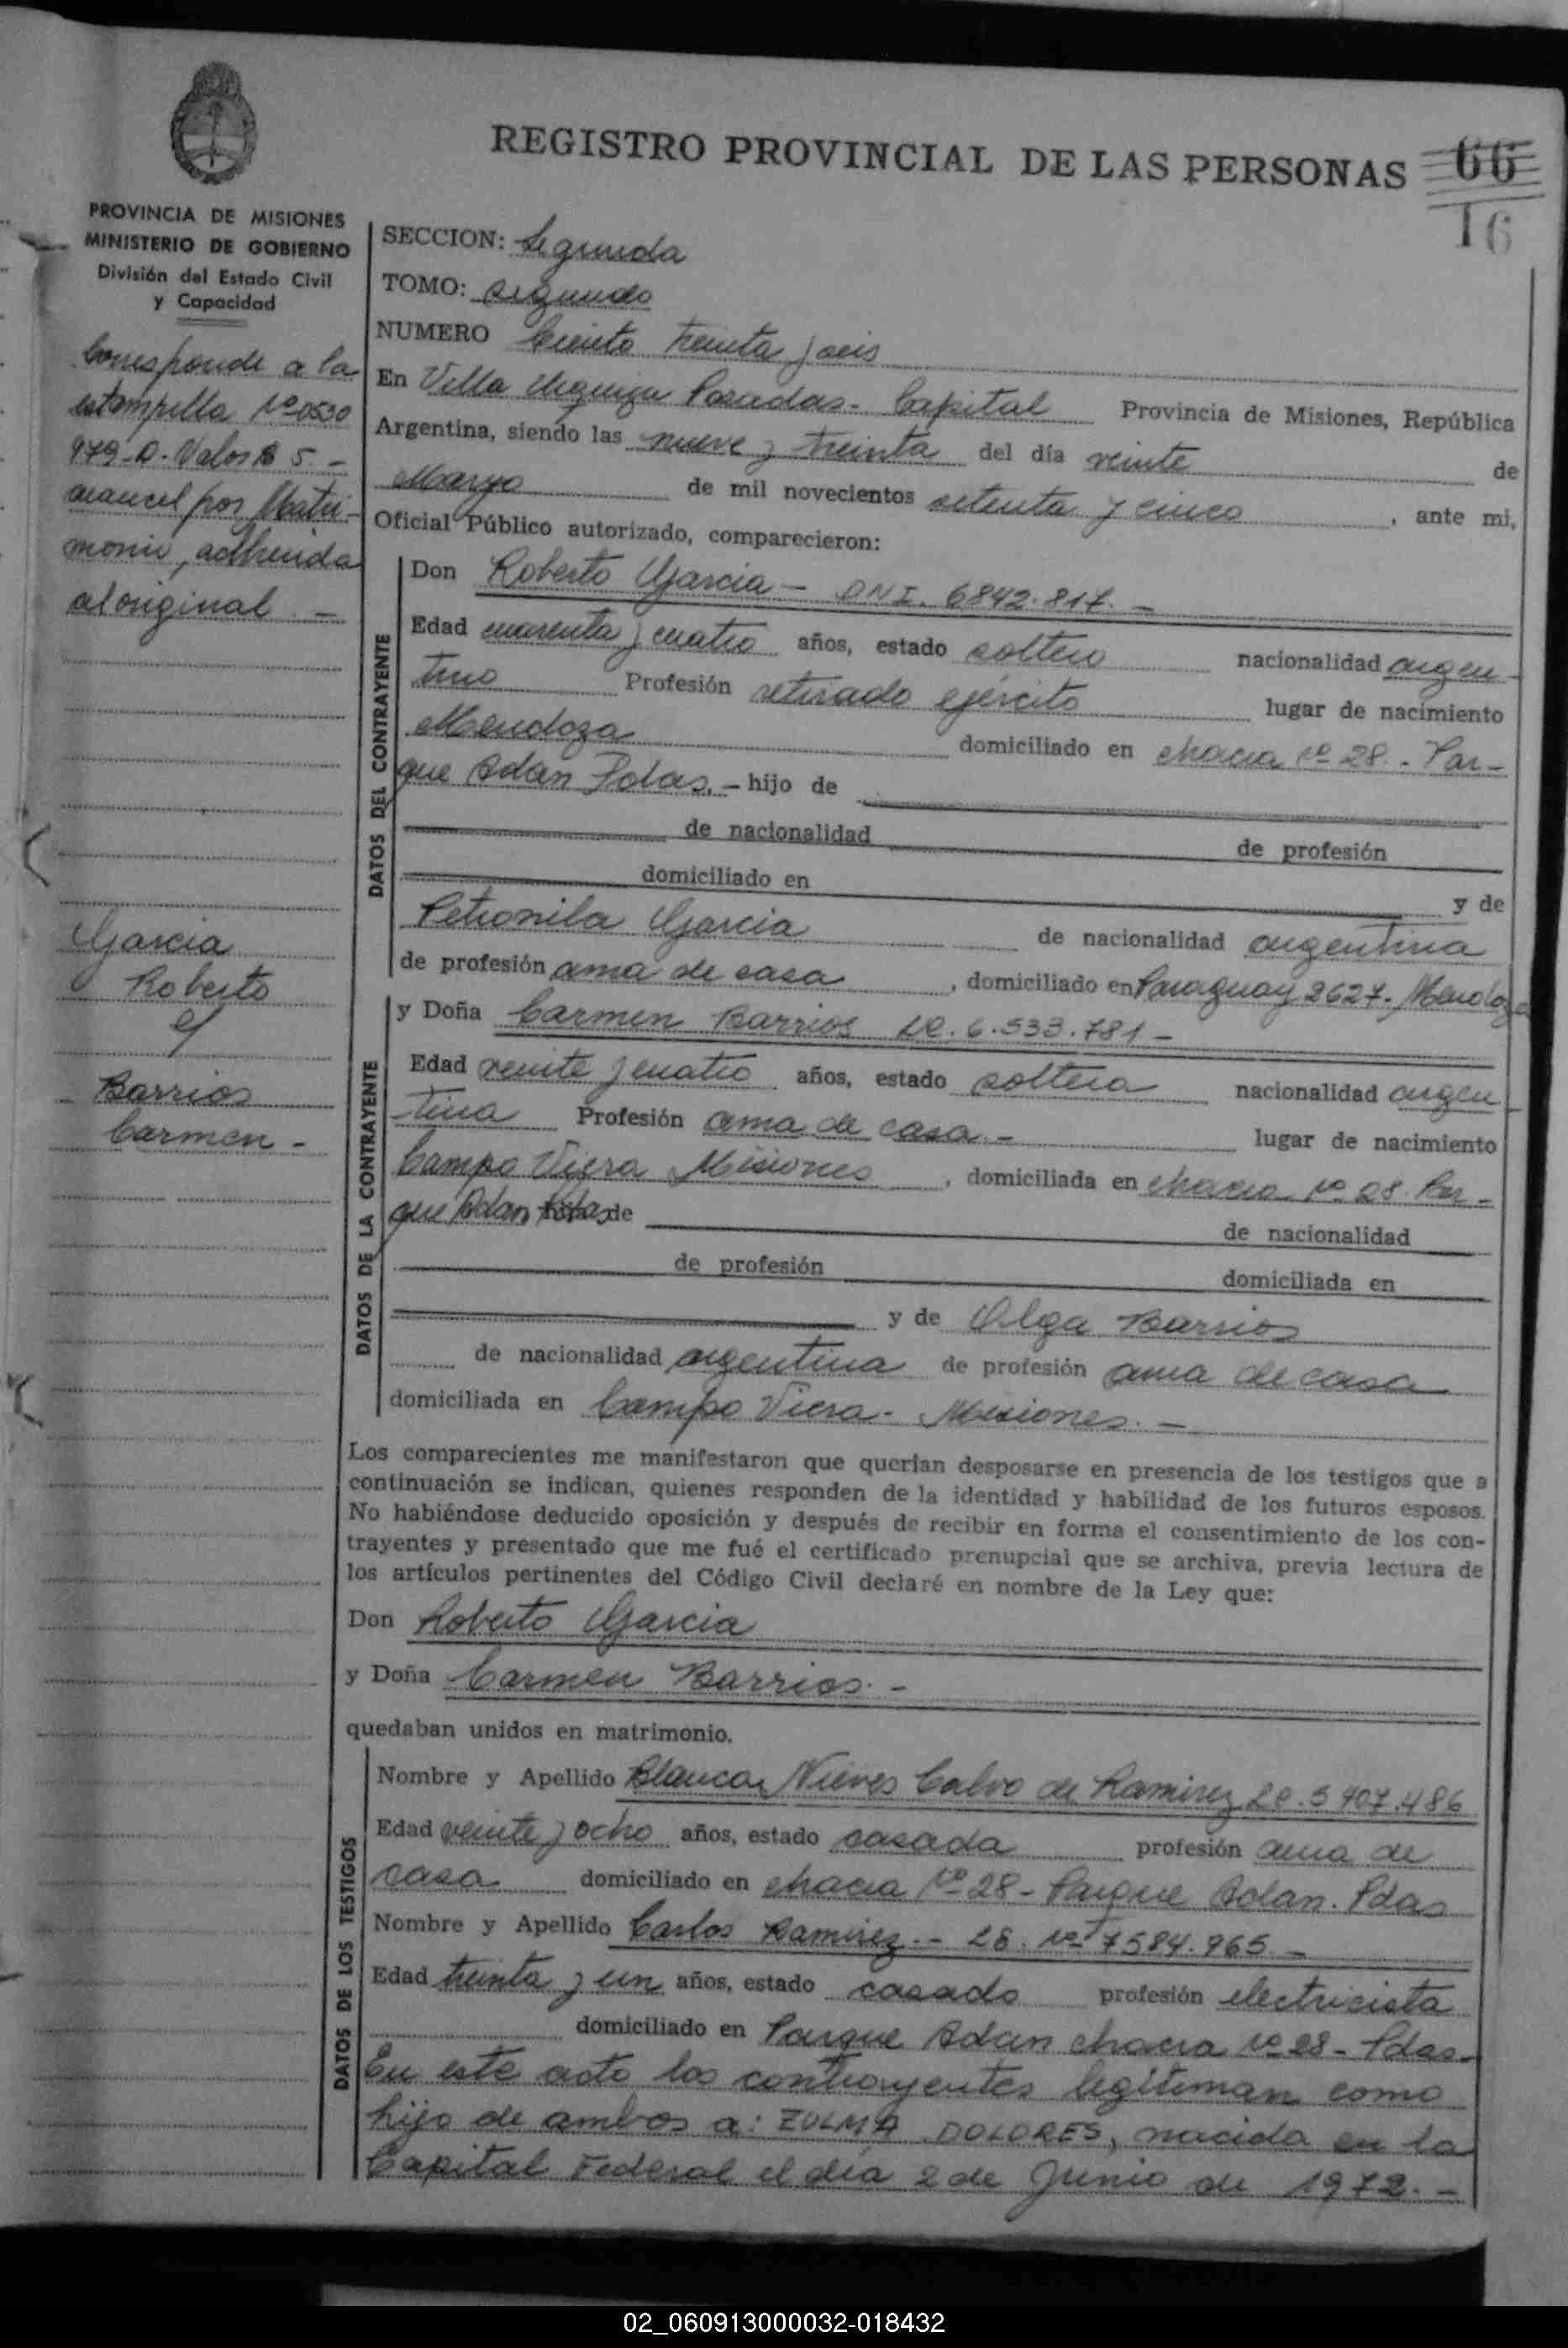 REGISTRO PROVINCIAL DE LAS PERSONAS
66
16
PROVINCIA DE MISIONES
MINISTERIO DE GOBIERNO
División del Estado Civil
y Capacidad
Corresponde a la
estampilla Nº 0530
979-D. Valor $ 5.-
arancel por Matri-
monio, adherida
al original. -
García
Roberto
y
Barrios
Carmen -
SECCION: Segunda
TOMO: Segundo
NUMERO Ciento treinta y seis
En Villa Urquiza Posadas - Capital Provincia de Misiones, República
Argentina, siendo las nueve y treinta del día veinte de
Marzo de mil novecientos setenta y cinco, ante mi,
Oficial Público autorizado, comparecieron:
DATOS DEL CONTRAYENTE
Don Roberto Garcia - DNI. 6842.817. -
Edad cuarenta y cuatro años, estado soltero nacionalidad argen-
tino Profesión retirado ejército lugar de nacimiento
Mendoza domiciliado en chacra Nº 28 - Par-
que Adan Pdas. - hijo de
de nacionalidad de profesión
domiciliado en y de
Petronila Garcia de nacionalidad argentina
de profesión ama de casa, domiciliado en Paraguay 2627. Mendoza
DATOS DE LA CONTRAYENTE
y Doña Carmen Barrios LC. 6.533.781 -
Edad veinte y cuatro años, estado soltera nacionalidad argen-
tina Profesión ama de casa - lugar de nacimiento
Campo Viera Misiones, domiciliada en chacra Nº 28. Par-
que Adan Pdas de
de nacionalidad
de profesión domiciliada en
y de Olga Barrios
de nacionalidad argentina de profesión ama de casa
domiciliada en Campo Viera - Misiones. -
Los comparecientes me manifestaron que querían desposarse en presencia de los testigos que a
continuación se indican, quienes responden de la identidad y habilidad de los futuros esposos.
No habiéndose deducido oposición y después de recibir en forma el consentimiento de los con-
trayentes y presentado que me fué el certificado prenupcial que se archiva, previa lectura de
los artículos pertinentes del Código Civil declaré en nombre de la Ley que:
Don Roberto Garcia
y Doña Carmen Barrios. -
quedaban unidos en matrimonio.
DATOS DE LOS TESTIGOS
Nombre y Apellido Blanca Nieves Calvo de Ramirez LC. 5407.486
Edad veinte y ocho años, estado casada profesión ama de
casa domiciliado en chacra Nº 28 - Parque Adan. Pdas
Nombre y Apellido Carlos Ramirez. - LE. Nº 7584.965 -
Edad treinta y un años, estado casado profesión electricista
domiciliado en Parque Adan chacra Nº 28 - Pdas.
En este acto los contrayentes legitiman como
hijo de ambos a: ZULMA DOLORES, nacida en la
Capital Federal el día 2 de Junio de 1972. -
02_060913000032-018432